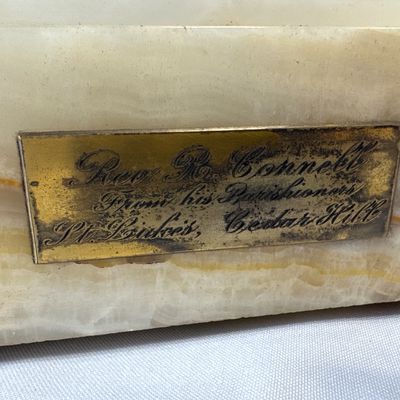 Rev. R. Connell
From his Parishioners
St. Luke's, Cedar Hill